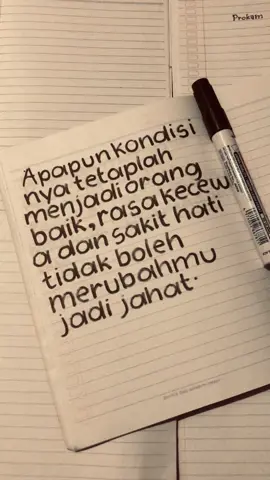 Prokem
Apapun kondisi
nya tetaplah
menjadi orang
baik, rasa kecew
a dan sakit hati
tidak boleh
merubahmu
jadi jahat.